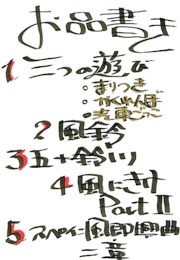 お品書き
1 三つの遊び
。まりつき
。かくれんぼ
。汽車ごっこ
2 風鈴
3 五十鈴川
4 風にきけ
Part II
5 スペイン風即興曲
二章